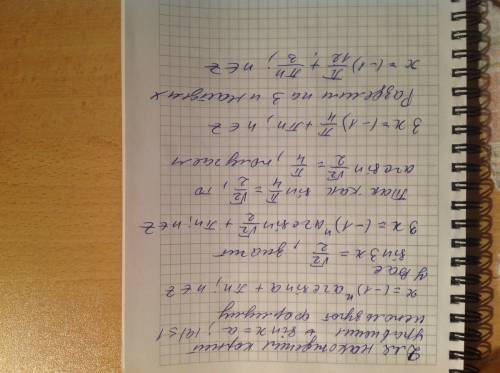 Для нахождения корней
уравнения sin x = a, |a| ≤ 1
используют формулу
x = (-1)ⁿ arcsin a + πn; n ∈ Z
У Вас
sin 3x = √2/2, значит
3x = (-1)ⁿ arcsin √2/2 + πn; n ∈ Z
Так как sin π/4 = √2/2, то
arcsin √2/2 = π/4, получаем
3x = (-1)ⁿ π/4 + πn; n ∈ Z
Разделим на 3 и находим x
x = (-1)ⁿ π/12 + πn/3; n ∈ Z